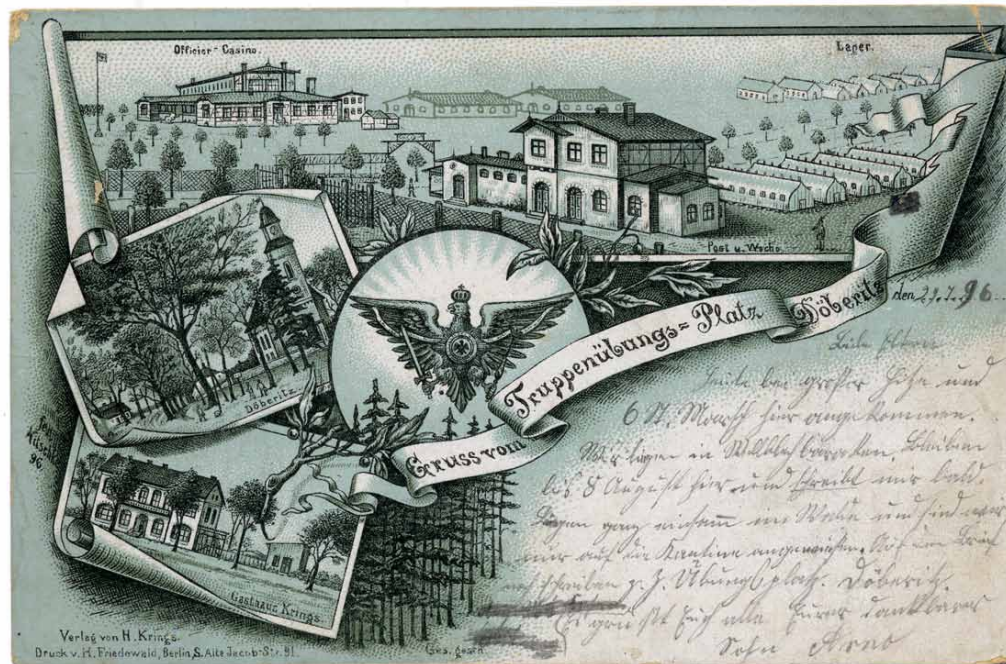 Officier-Casino.
Lager.
Post u. Wache.
Döberitz
Gruss vom Truppenübungs=Platz Döberitz
den 29.7.96.
Liebe Eltern
Heute bei großer Hitze und
6 St. Marsch hier angekommen.
Wir liegen in Wellblechbaracken, bleiben
bis 8 August hier und schreibt mir bald.
Liegen ganz einsam im Walde und sind
nur auf die Kantine angewiesen. Auf den Brief
schreiben z. Z. Übungsplatz. Döberitz.
Es grüßt Euch alle Eurer dankbarer
Sohn
96
Gasthaus Krings.
Verlag von H. Krings.
Druck v. H. Friedewald, Berlin, S. Alte Jacob-Str. 91.
Ges. gesch.